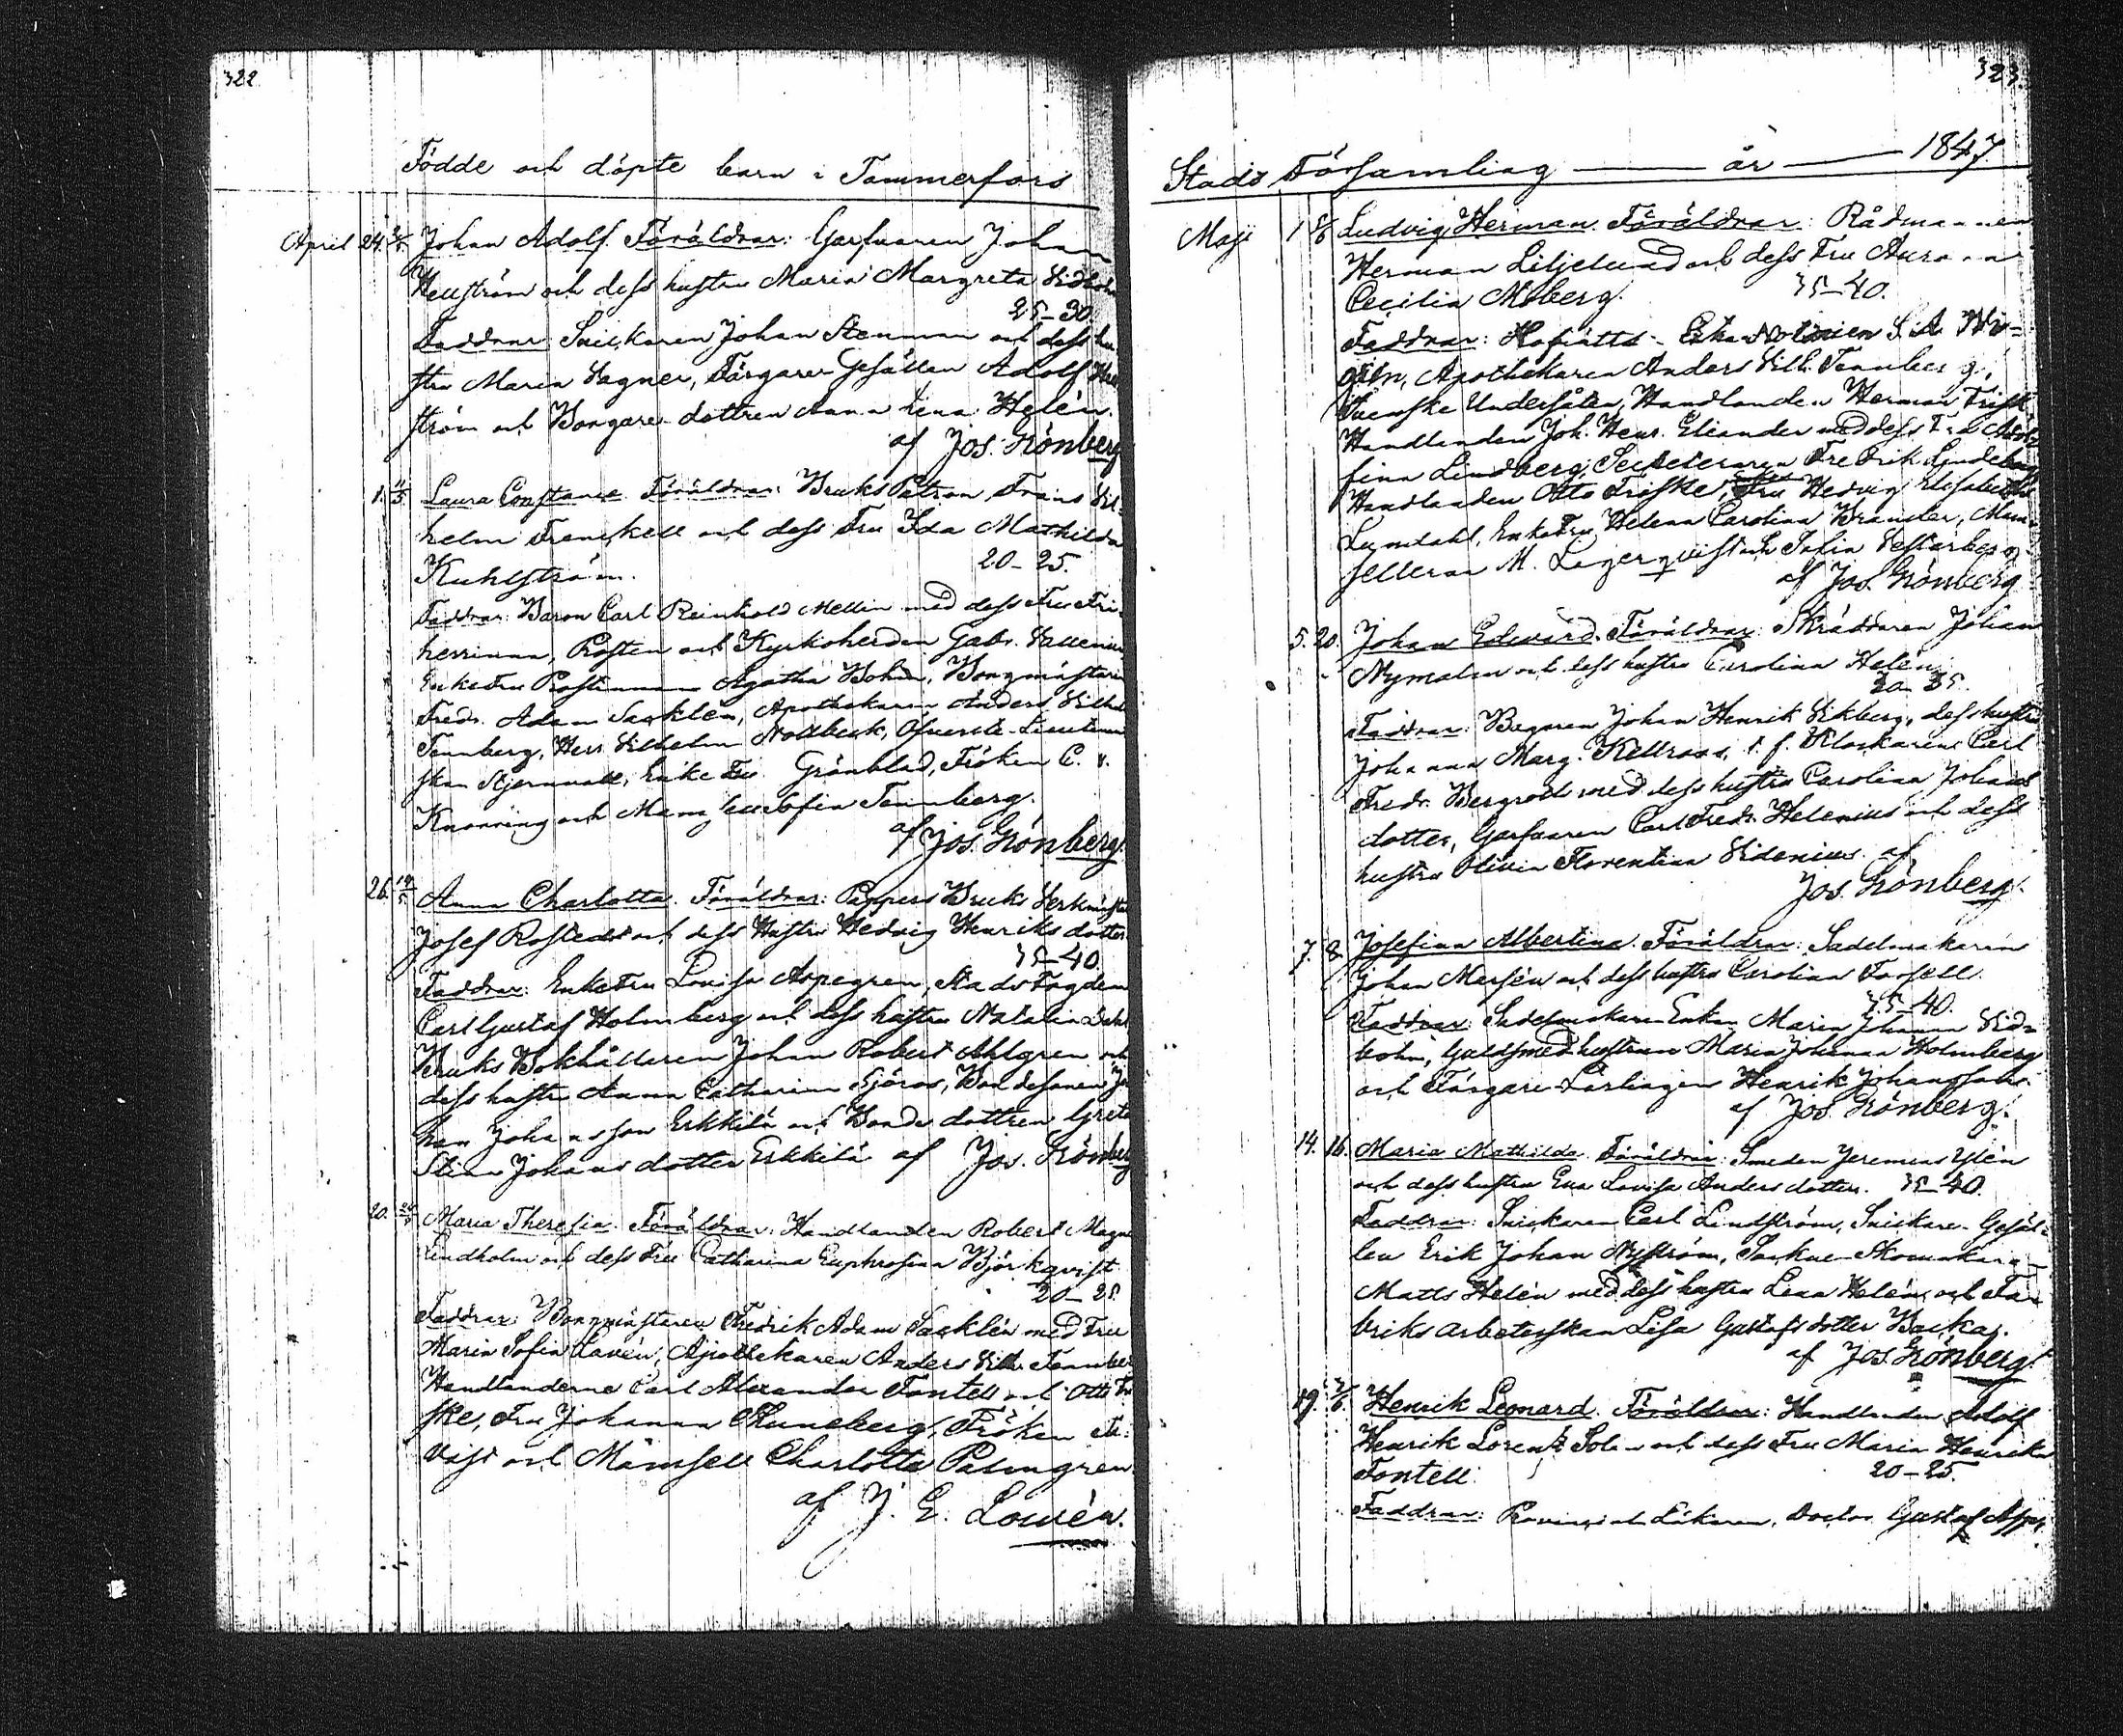 322
Födde och döpte barn i Tammerfors
April 24. Johan Adolf. Föräldrar: Garfvaren Johan
Hellström och dess hustru Maria Margreta
25–30.
Faddrar: Snickaren Johan Stenman och dess hu-
stru Maria Wagner, Färgare Gesällen Adolf
ström och Borgare dottren Anna Lena Helén.
af Jos. Grönberg
1. 11/5 Laura Constance. Föräldrar: Bruks Patron Frans Vil-
helm Frenckell och dess Fru Ida Mathilda
Kuhlström. 20–25.
Faddrar: Baron Carl Reinhold Mellin med dess Fru Fri-
herrinna, Prosten och Kyrkoherden Gabr.
EnkeFru Prostinnan Agatha Bohm, Borgmästaren
Fredr. Adam Sacklén, Apothekaren Anders Vilhel
Tennberg, Herr Vilhelm Nottbeck, Öfverste-Lieutenan
skan Stjernvall, Enke Fru Grönblad, Fröken C. v.
Knorring och Mamsell Sofia Tennberg.
af Jos. Grönberg.
26. 14/5 Anna Charlotta. Föräldrar: Pappers Bruks Verkmästa
Josef Rostedt och dess Hustru Hedvig Henriksdotter
35–40
Faddrar: EnkeFru Lovisa Aspegren, Stads Fogden
Carl Gustaf Holmberg och dess hustru Natalia
Bruks Bokhållaren Johan Robert Ahlgren och
dess hustru Anna Catharina Sjöros, Bondesonen Jo
han Johansson Erkkilä och Bonde dottren Greta
Stina Johansdotter Erkkilä af Jos. Grönberg
20. Maria Theresia. Föräldrar: Handlanden Robert Magn
Lindholm och dess Fru Catharina Euphrosina Björkqvist
20–25.
Faddrar: Borgmästaren Fredrik Adam Sacklén med Fru
Maria Sofia Lavén, Apothekaren Anders Vilh. Tennber
Handlanderne Carl Alexander Fontell och Otto Fri
ske, Fru Johanna Runeberg, Fröken
och Mamsell Charlotta Palmgren
af J. E. Lowén.
323.
Stads Församling — år — 1847
Maji 1 Ludvig Herman. Föräldrar: Rådmannen
Herman Liljelund och dess Fru Aurora
Cecilia Moberg. 35–40.
Faddrar: Hofrätts-
Apothekaren Anders Vilh. Tennberg,
Svenske Undersåten, Handlanden Herman Friske,
Handlanden Joh. Henr. Eliander med dess Fru
fina Lindberg, Sekreteraren Fredrik Lindeberg
Handlanden Otto Friske, Fru Hedvig Elisabeth
EnkeFru Helena Carolina Brander, Mam-
sellerna M. Lagerqvist och Sofia Vesterberg
af Jos. Grönberg
5. 20. Johan Edvard. Föräldrar: Skräddaren Johan
Nymalm och dess hustru Carolina Helén.
Faddrar: Bagaren Johan Henrik Vikberg, dess hustru
Johanna Marg. Kellroos, f. f. Klockaren Carl
Fredr. Bergroth med dess hustru Carolina Johans
dotter, Garfvaren Carl Fredr. Helenius och dess
hustru Olivia Florentina Sidenius. af
Jos. Grönberg.
7. 8. Josefina Albertina. Föräldrar: Sadelmakaren
Johan Mersén och dess hustru Carolina Forsell.
35–40.
Faddrar: Sadelmakare Enkan Maria Johanna Vid-
bohm, Guldsmeds hustrun Maria Johanna Holmberg
och Färgare Lärlingen Henrik Johansson.
af Jos. Grönberg.
14. 16. Maria Mathilda. Föräldrar: Smeden Jeremias Ylén
och dess hustru Eva Lovisa Andersdotter. 35–40.
Faddrar: Snickaren Carl Lindström, Snickare-Gesäl-
len Erik Johan Nyström, Sockne Skomakaren
Matts Helén med dess hustru Lena Helén, och Fa-
briks arbeterskan Lisa Gustafsdotter Backas.
af Jos. Grönberg.
19. 2/6. Henrik Leonard. Föräldrar: Handlanden Adolf
Henrik Lorentz Solin och dess Fru Maria Henrika
Fontell. 20–25.
Faddrar: Provincial Läkaren, Doctor Gustaf